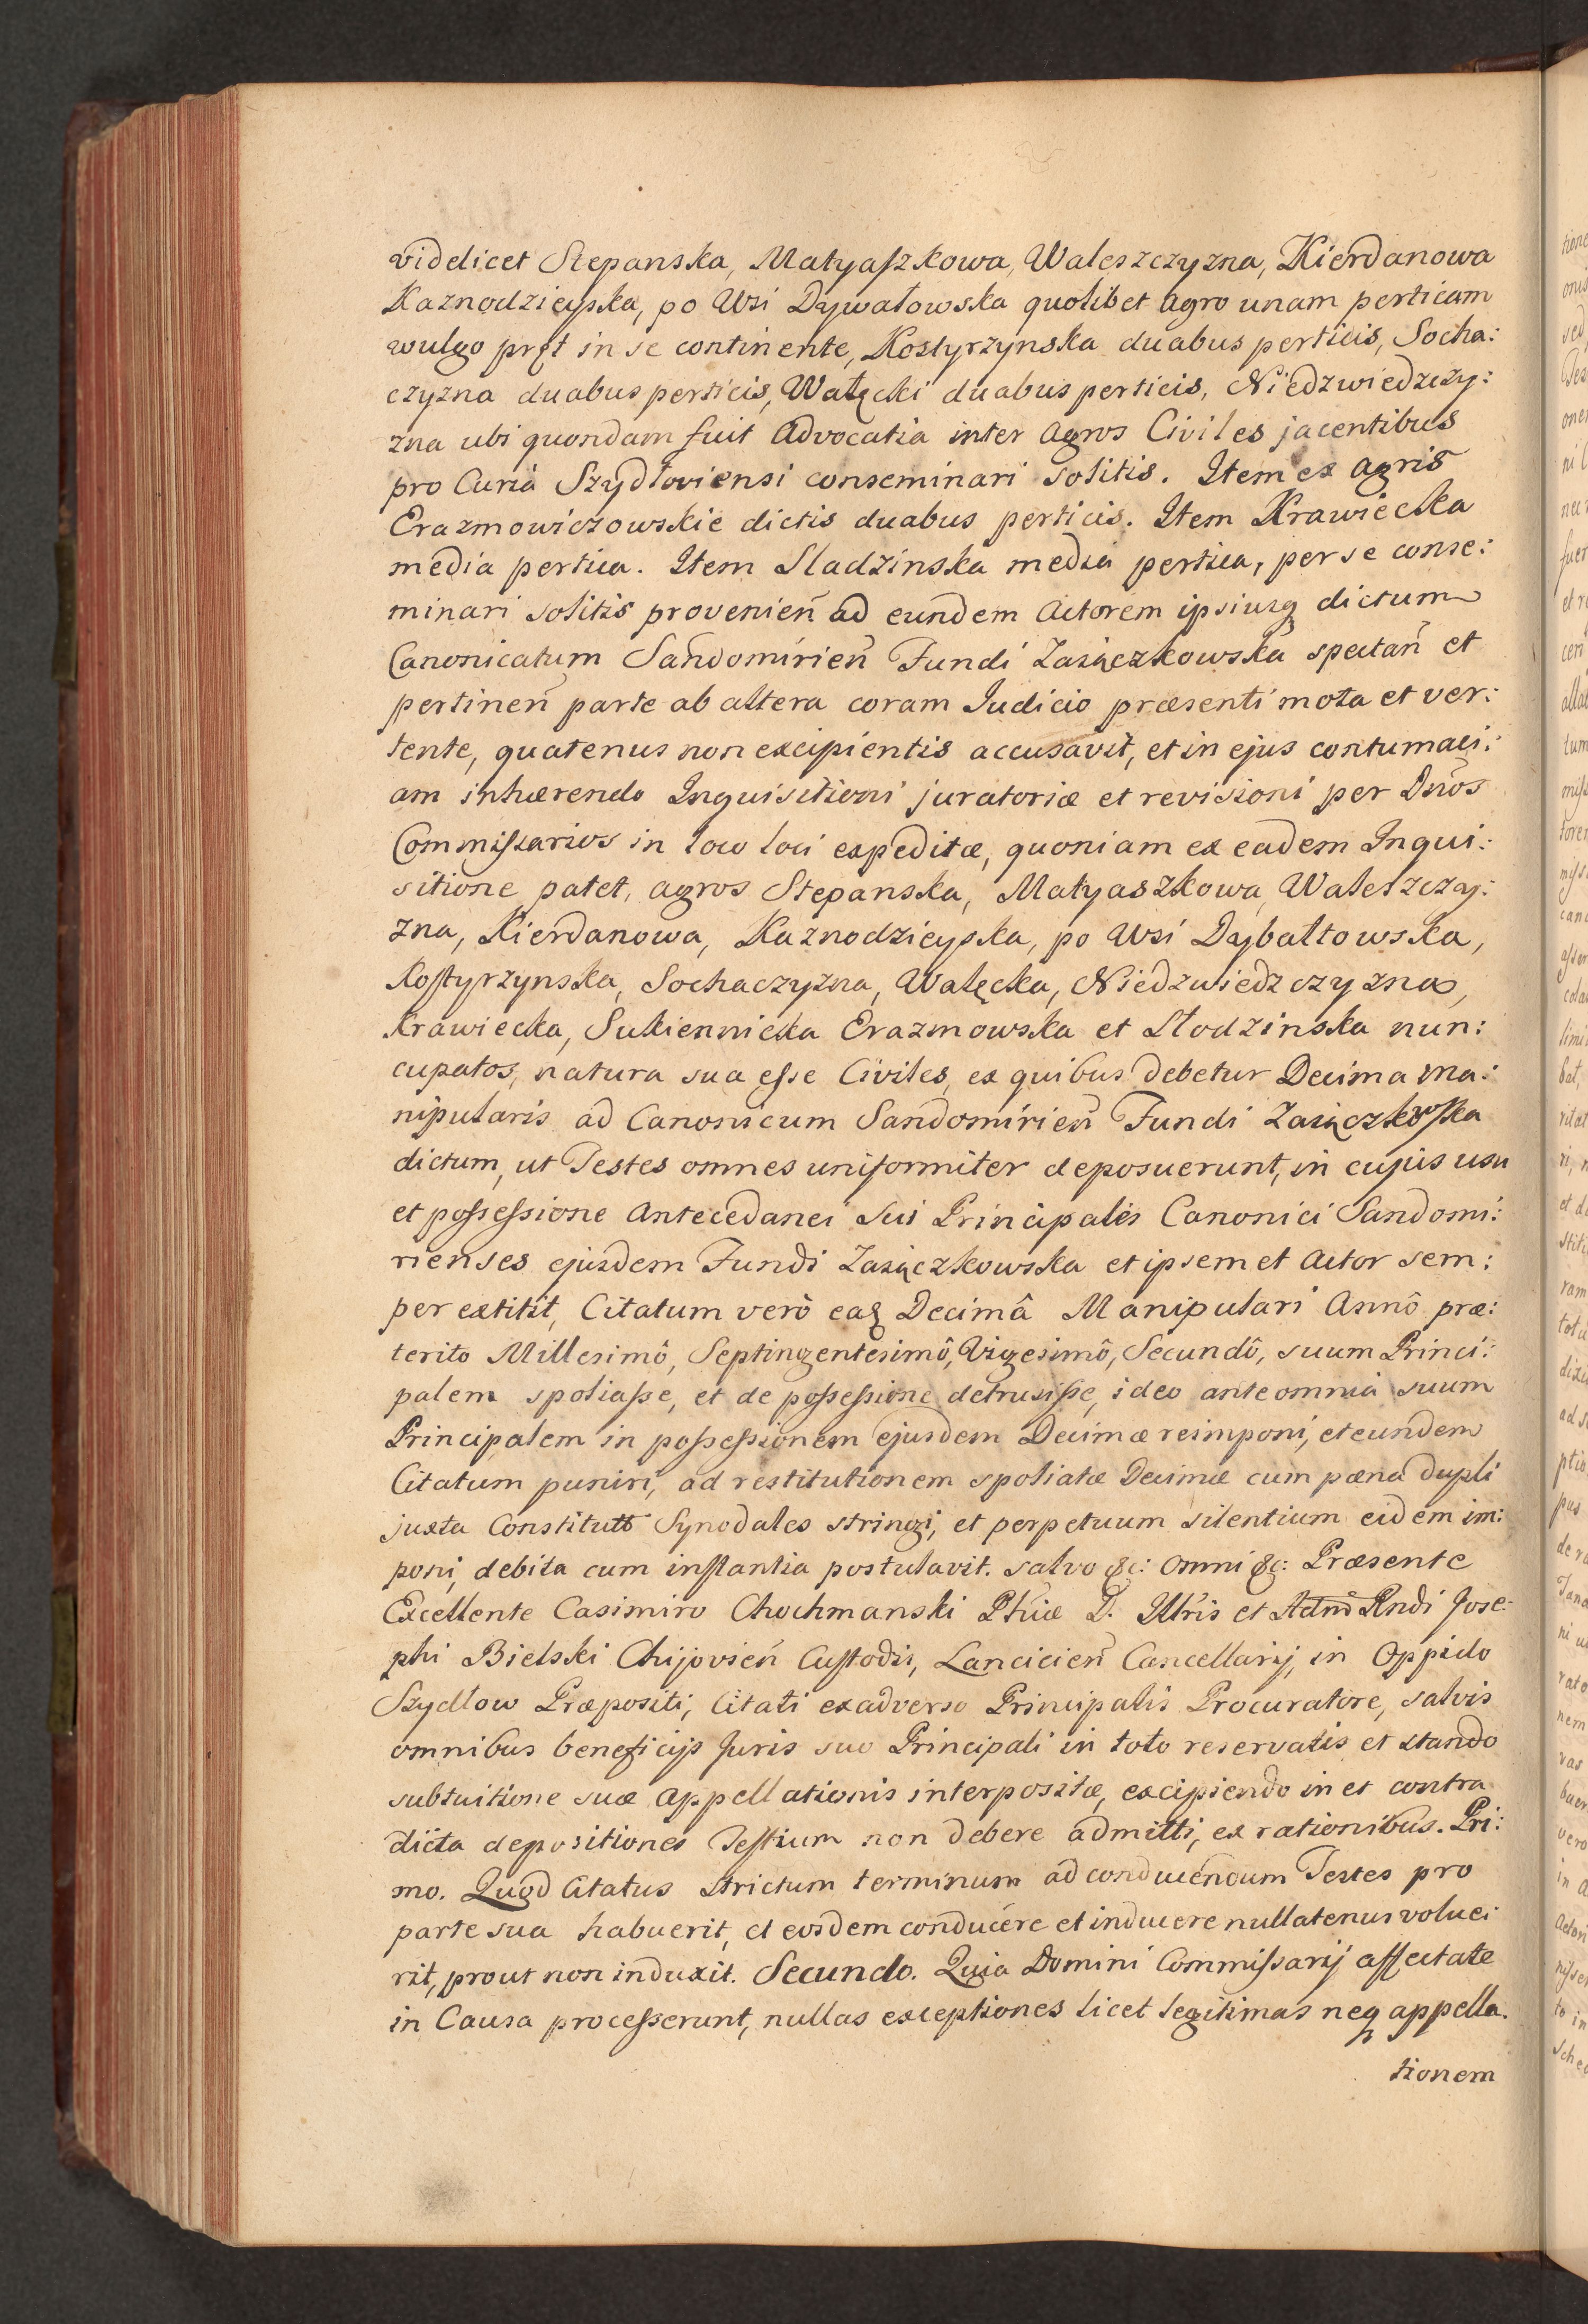 videlicet Stepanska, Matyaszkowa, Waleszczyzna, Kierdanowa
Kaznodzieyska, po Wsi Dywałowska quolibet agro unam perticam
wulgo pręt in se continente, Kostyrzynska duabus perticis, Socha:
czyzna duabus perticis, Wałęcki duabus perticis, Niedzwiedzczy:
zna ubi quondam fuit Advocatia inter Agros Civiles jacentibus
pro Curia Szydłoviensi conseminari solitis. Item ex agris
Erazmowiczowskie dictis duabus perticis. Item Krawiecka
media pertica. Item Sladzinska media pertica, per se conse:
minari solitis provenień ad eundem Actorem ipsiusq dictum
Canonicatum Sandomirień Fundi Zaiączkowska spectań et
pertineń parte ab altera coram Iudicio præsenti mota et ver:
tente, quatenus non excipientis accusavit, et in ejus contumaci:
am inhærendo Inquisitioni juratoriæ et revisioni per Dnōs
Commissarios in loco loci expeditæ, quoniam ex eadem Inqui:
sitione patet, agros Stepanska, Matyaszkowa, Waleszczy:
zna, Kierdanowa, Kaznodzieyska, po Wsi Dybałtowska,
Kostyrzynska, Sochaczyzna, Wałęcka, Niedzwiedzczyzna,
Krawiecka, Sukiennicka Erazmowska et Słodzinska nun:
cupatos, natura sua esse Civiles, ex quibus debetur Decima ma:
nipularis ad Canonicum Sandomirień Fundi Zaiączkowska
dictum, ut Testes omnes uniformiter deposuerunt, in cujus usu
et possessione Antecedanei sui Principalis Canonici Sandomi:
rienses ejusdem Fundi Zaiączkowska et ipsemet Actor sem:
per extitit, Citatum verò eaq Decimâ Manipulari Annô præ:
terito Millesimô, Septingentesimô, Vigesimô, Secundô, suum Princi:
palem spoliasse, et de possessione detrusisse, ideo ante omnia suum
Principalem in possessionem ejusdem Decimæ reimponi, et eundem
Citatum puniri, ad restitutionem spoliatæ Decimæ cum pæna dupli
juxta Constitutt Synodales stringi, et perpetuum silentium eidem im:
poni, debita cum instantia postulavit. salvo &c: omni &c: Præsente
Excellente Casimiro Chochmanski Phiæ D. Illris et Adm Rndi Jose:
phi Bielski Chijovień Custodis, Lancicień Cancellarij, in Oppido
Szydlow Præpositi, Citati exadverso Principalis Procuratore, salvis
omnibus beneficijs Juris suo Principali in toto reservatis et stando
subtuitione suæ Appellationis interpositæ, excipiendo in et contra
dicta depositiones Testium non debere admitti, ex rationibus. Pri:
mo. Quod Citatus strictum terminum ad conducendum Testes pro
parte sua habuerit, et eosdem conducere et inducere nullatenus volue:
rit, prout non induxit. Secundo. Quia Domini Commissarij affectate
in Causa processerunt, nullas exceptiones licet legitimas neq appella.
tionem